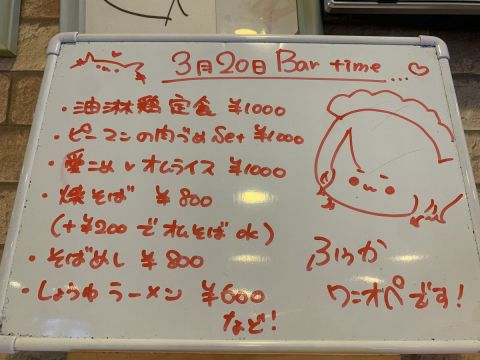 3月20日 Bar time ...♡
・油淋鶏定食 ¥1000
・ピーマンの肉づめSet ¥1000
・愛こめ♥オムライス ¥1000
・焼そば ¥800
(+¥200でオムそばok)
・そばめし ¥800
・しょうゆラーメン ¥600
など!
ふうか
ワンオペです!